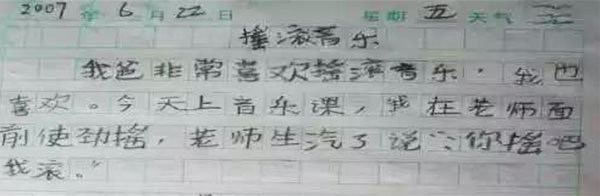 2007 年 6 月 22 日 星期 五 天气
摇滚音乐
我爸非常喜欢摇滚音乐，我也
喜欢。今天上音乐课，我在老师面
前使劲摇，老师生汽了说：“你摇吧
我滚。”